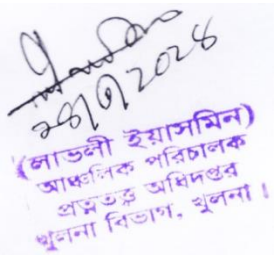 ২৪/৭/২০২৪
(লাভলী ইয়াসমিন)
আঞ্চলিক পরিচালক
প্রত্নতত্ত্ব অধিদপ্তর
খুলনা বিভাগ, খুলনা।